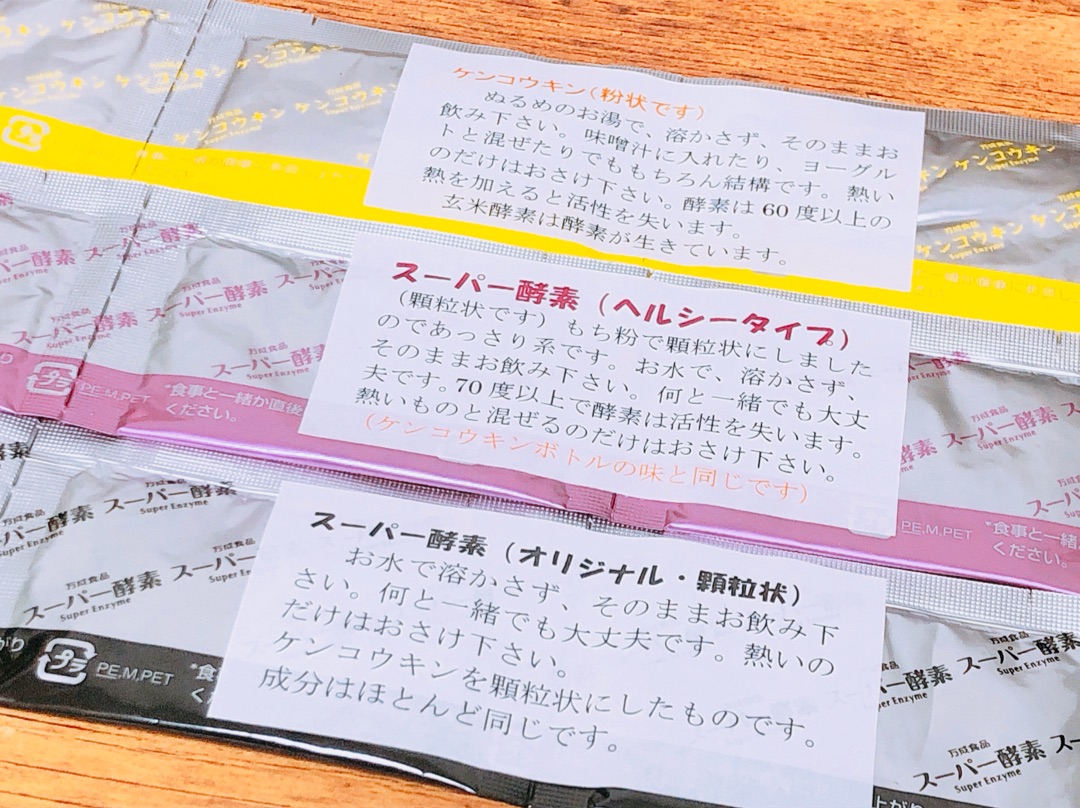 ケンコウキン(粉状です)
ぬるめのお湯で、溶かさず、そのままお
飲み下さい。味噌汁に入れたり、ヨーグル
トと混ぜたりでももちろん結構です。熱い
のだけはおさけ下さい。酵素は60度以上の
熱を加えると活性を失います。
玄米酵素は酵素が生きています。
万成食品
ケンコウキン
Super Enzyme
スーパー酵素(ヘルシータイプ)
(顆粒状です)もち粉で顆粒状にしました
のであっさり系です。お水で、溶かさず、
そのままお飲み下さい。何と一緒でも大丈
夫です。70度以上で酵素は活性を失います。
熱いものと混ぜるのだけはおさけ下さい。
(ケンコウキンボトルの味と同じです)
万成食品
スーパー酵素
Super Enzyme
プラ
PE.M.PET
*食事と一緒か直後
ください。
PE.M.PET
*食事と一緒
ください。
スーパー酵素(オリジナル・顆粒状)
お水で溶かさず、そのままお飲み下
さい。何と一緒でも大丈夫です。熱いの
だけはおさけ下さい。
ケンコウキンを顆粒状にしたものです。
成分はほとんど同じです。
万成食品
スーパー酵素
Super Enzyme
プラ
PE.M.PET